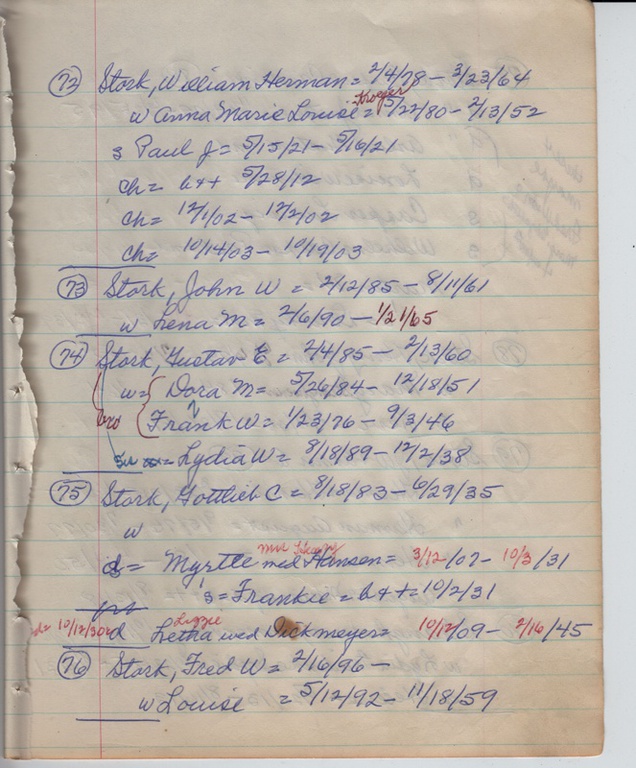 72 Stork, William Herman = 2/4/78 - 3/23/64
Kroger
w Anna Marie Louise = 5/22/80 - 2/13/52
s Paul J = 5/15/21 - 5/16/21
ch = b++ 5/28/12
ch = 12/1/02 - 12/2/02
ch = 10/14/03 - 10/19/03
73 Stork, John W = 2/12/85 - 8/11/61
w Lena M = 2/6/90 - 1/21/65
74 Stork, Gustav E = 2/4/85 - 2/13/60
w = Dora M = 5/26/84 - 12/18/51
bro Frank W = 1/23/76 - 9/3/46
= Lydia W = 8/18/89 - 12/2/38
75 Stork, Gottlieb C = 8/18/83 - 6/29/35
w
d = Myrtle wed Hansen = 3/12/07 - 10/3/31
s = Frankie = b++ = 10/2/31
Lizzie
10/12/30 d Letha wed Dickmeyer = 10/12/09 - 2/16/45
76 Stork, Fred W = 2/16/96 -
w Louise = 5/12/92 - 11/18/59